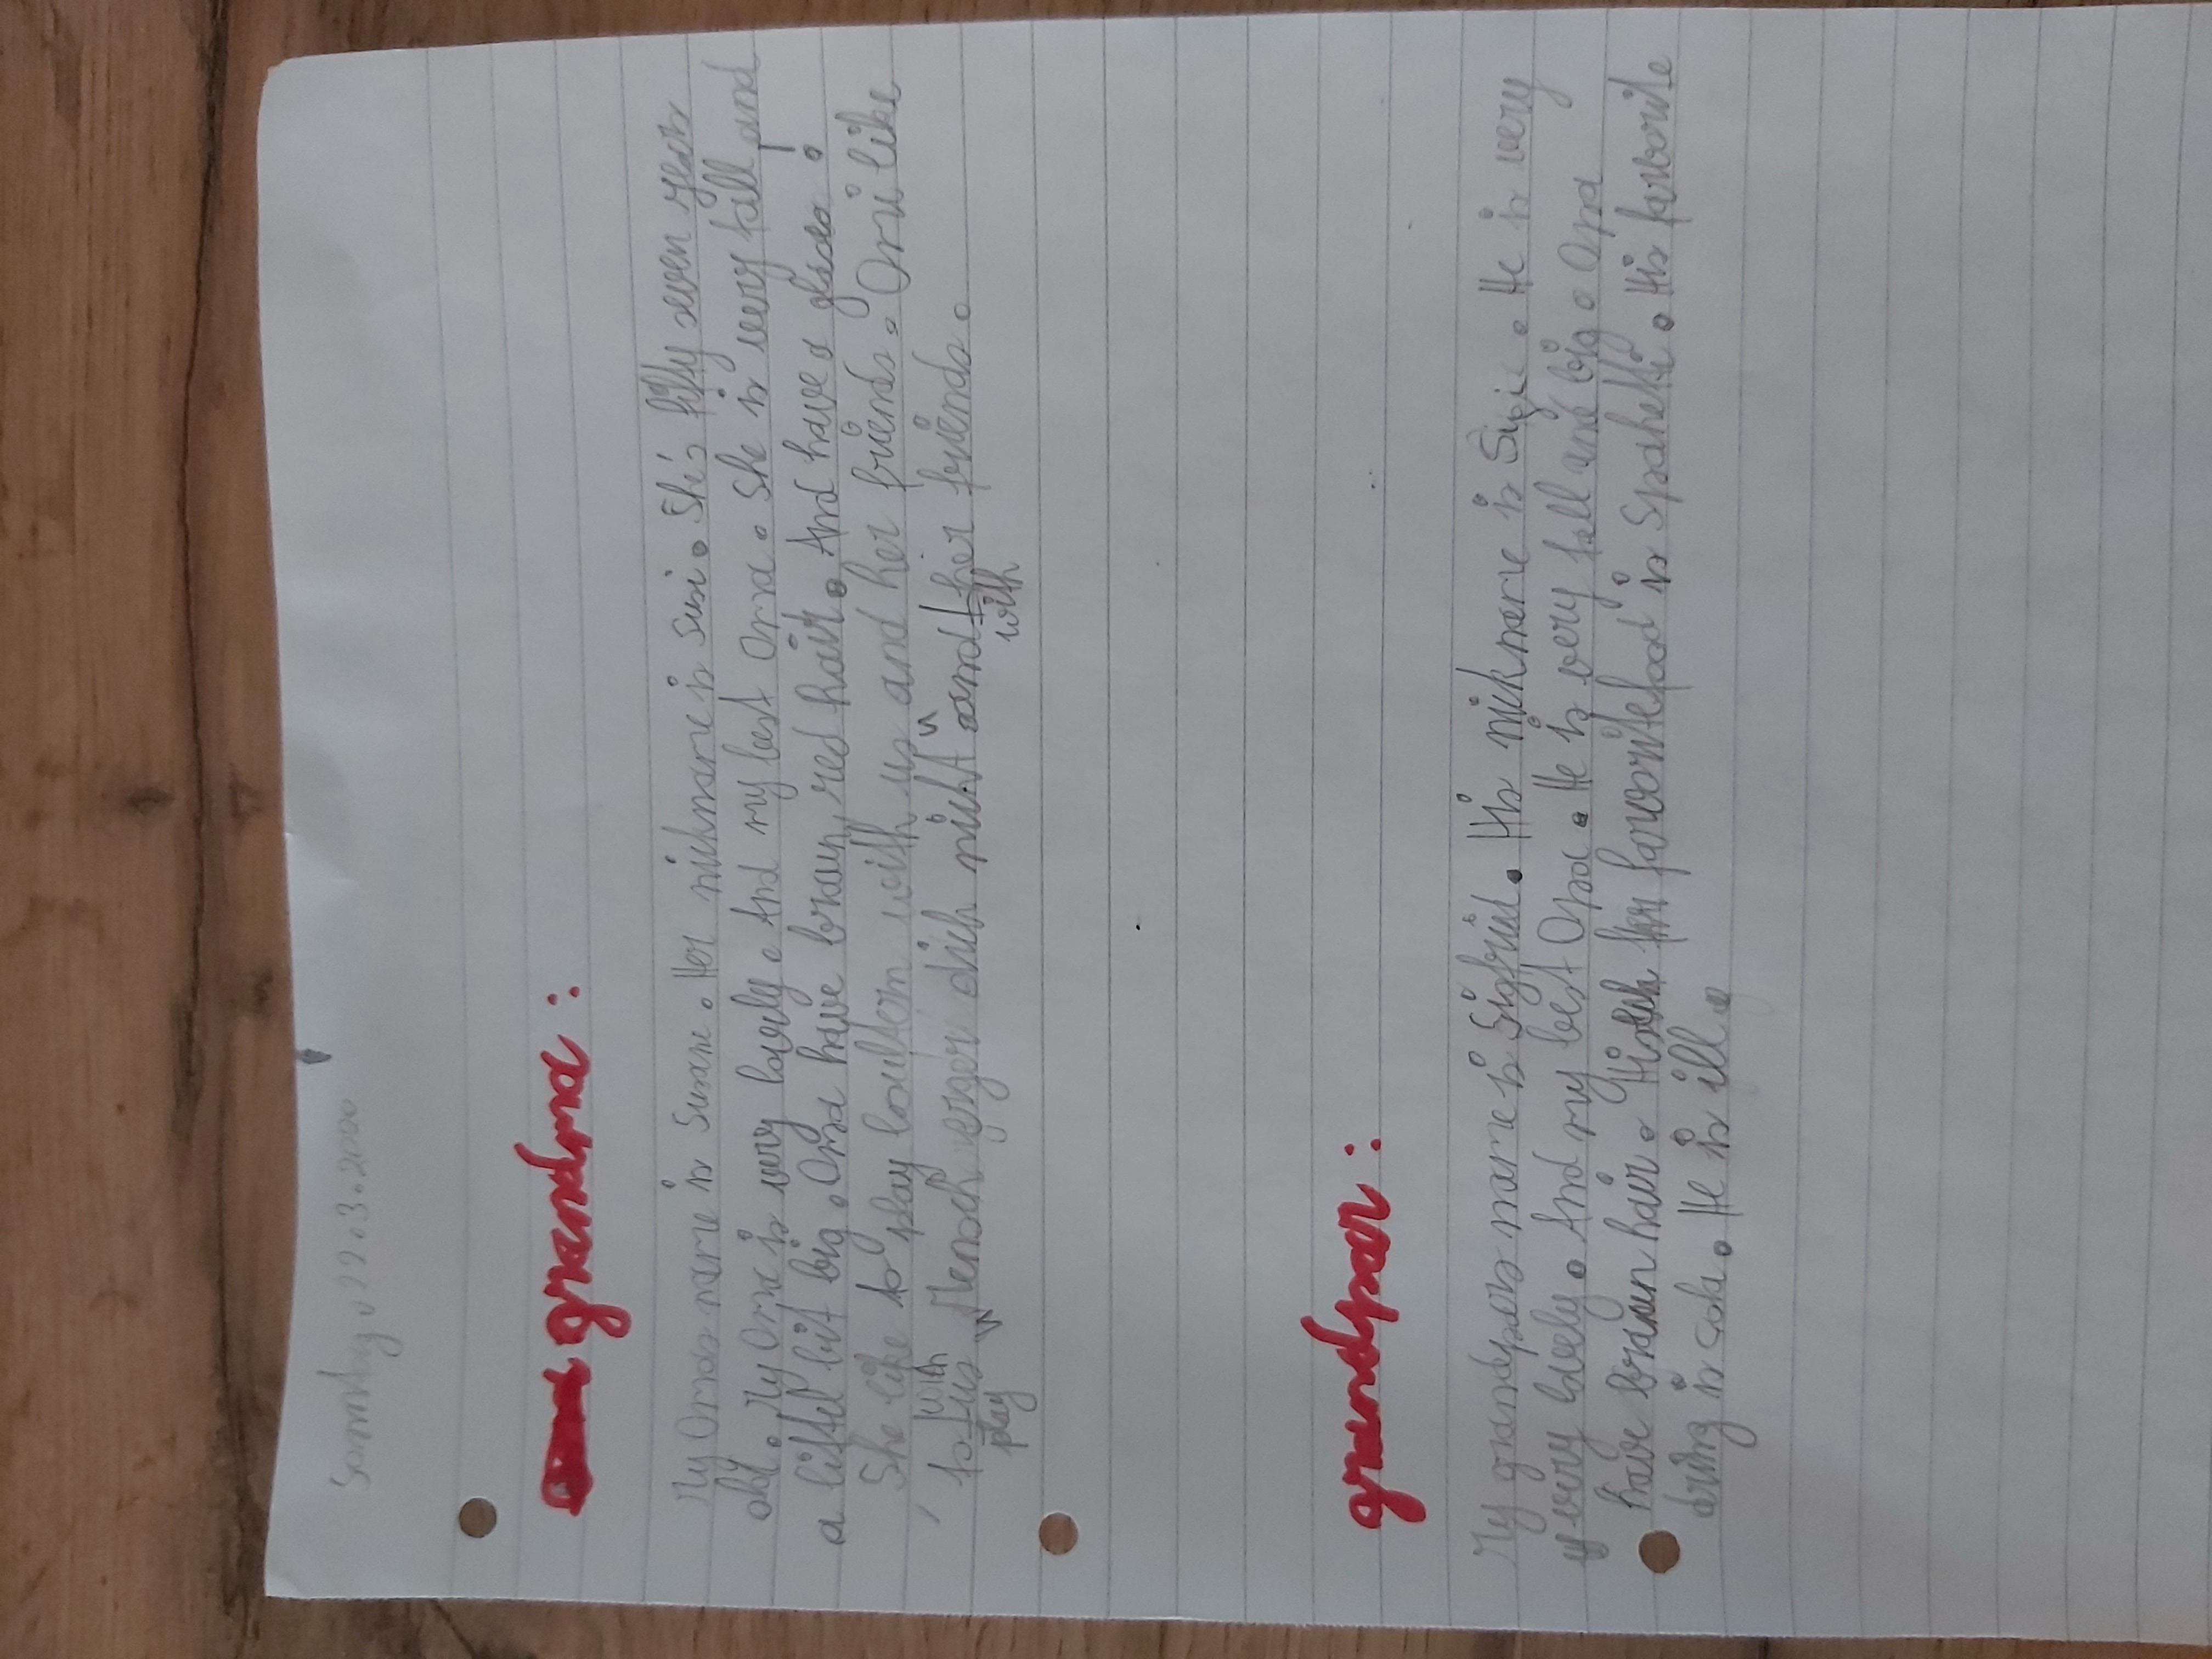 22.03.2000
grandma:
My Omas name is Susane. Her nickname is Susi. She's fifty seven years
old. My Oma is very lovely. And my best Oma. She is very tall and
a littel bit big. Oma have braun, red hair. And have a
She like to play with us and her friends. Omi like
to play with us "Mensch erger dich nicht" and with her friends.
grandpar:
My grandpars name is Sigfried. His nikname is He is very
very lovely. And my best Opa. He is very tall and big. Opa
have braun hair. farvoritefood is Spahetti. His favorite
drink is cola. He is ill.